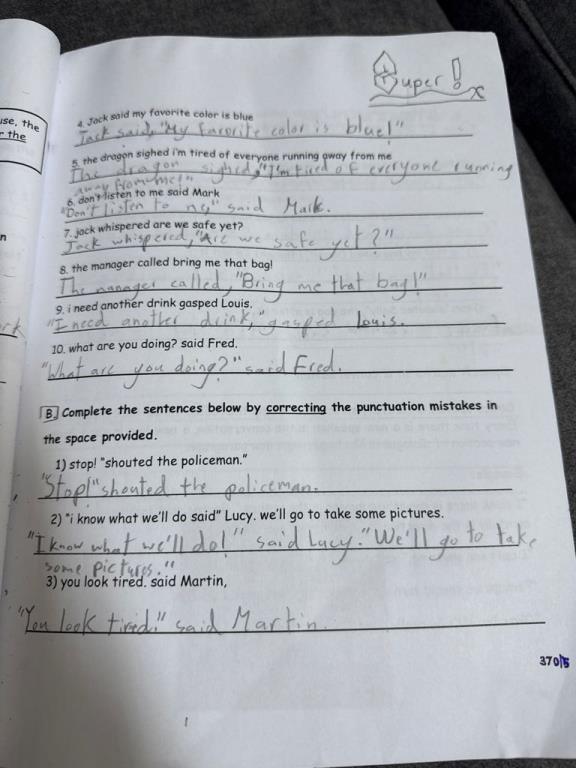 Super!
use, the
r the
4. Jack said my favorite color is blue
Jack said, "My favorite color is blue!"
5. the dragon sighed i'm tired of everyone running away from me
The dragon sighed, "I'm tired of everyone running
away from me!"
6. don't listen to me said Mark
"Don't listen to me," said Mark.
7. jack whispered are we safe yet?
Jack whispered, "Are we safe yet?"
8. the manager called bring me that bag!
The manager called, "Bring me that bag!"
9. i need another drink gasped Louis.
"I need another drink," gasped Louis.
10. what are you doing? said Fred.
"What are you doing?" said Fred.
B. Complete the sentences below by correcting the punctuation mistakes in
the space provided.
1) stop! "shouted the policeman."
"Stop!" shouted the policeman.
2) "i know what we'll do said" Lucy. we'll go to take some pictures.
"I know what we'll do!" said Lucy. "We'll go to take
some pictures."
3) you look tired. said Martin,
"You look tired!" said Martin.
370/5